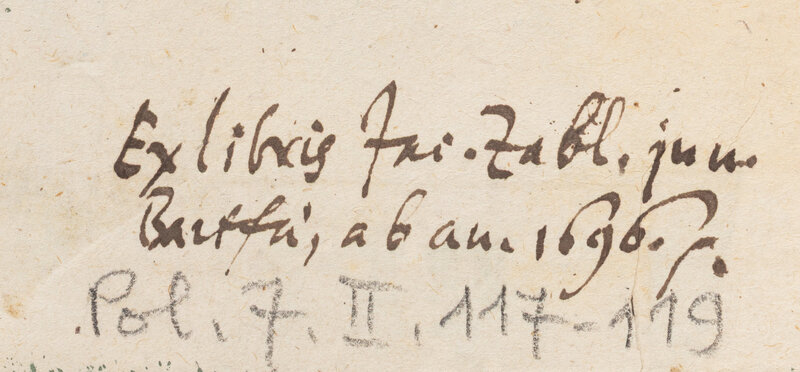 Ex libris Jac. Zabl. jun.
Bartfa, ab an. 1696.
Pol. 7. II. 117-119